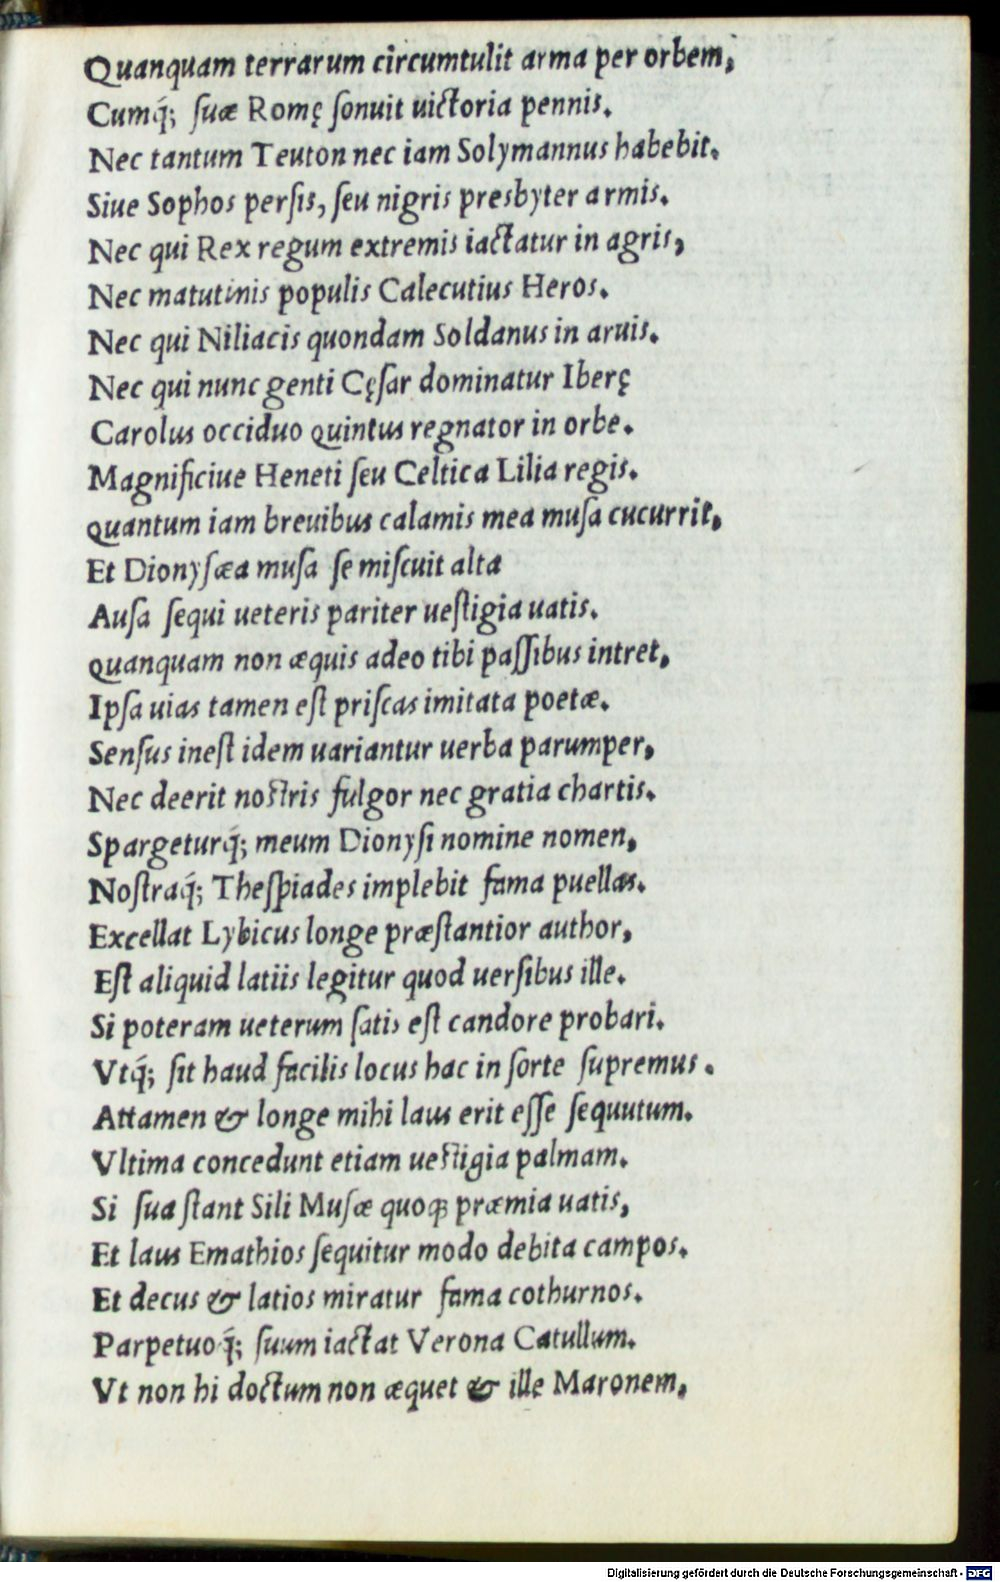 Quanquam terrarum circumtulit arma per orbem,
Cumq́; ſuæ Romę ſonuit uictoria pennis.
Nec tantum Teuton nec iam Solymannus habebit.
Siue Sophos perſis, ſeu nigris presbyter armis.
Nec qui Rex regum extremis iactatur in agris,
Nec matutinis populis Calecutius Heros.
Nec qui Niliacis quondam Soldanus in aruis.
Nec qui nunc genti Cęſar dominatur Iberę
Carolus occiduo quintus regnator in orbe.
Magnificiue Heneti ſeu Celtica Lilia regis.
quantum iam breuibus calamis mea muſa cucurrit,
Et Dionyſæa muſa ſe miſcuit alta
Auſa ſequi ueteris pariter ueſtigia uatis.
quanquam non æquis adeo tibi paſſibus intret,
Ipſa uias tamen eſt priſcas imitata poetæ.
Senſus ineſt idem uariantur uerba parumper,
Nec deerit noſtris fulgor nec gratia chartis.
Spargeturq́; meum Dionyſi nomine nomen,
Noſtraq́; Theſpiades implebit fama puellas.
Excellat Lybicus longe præſtantior author,
Eſt aliquid latiis legitur quod uerſibus ille.
Si poteram ueterum ſatis eſt candore probari.
Vtq́; ſit haud facilis locus hac in ſorte ſupremus.
Attamen & longe mihi laus erit eſſe ſequutum.
Vltima concedunt etiam ueſtigia palmam.
Si ſua ſtant Sili Muſæ quoqꝫ præmia uatis,
Et laus Emathios ſequitur modo debita campos.
Et decus & latios miratur fama cothurnos.
Parpetuoq́; ſuum iactat Verona Catullum.
Vt non hi doctum non æquet & ille Maronem,
Digitalisierung gefördert durch die Deutsche Forschungsgemeinschaft - DFG